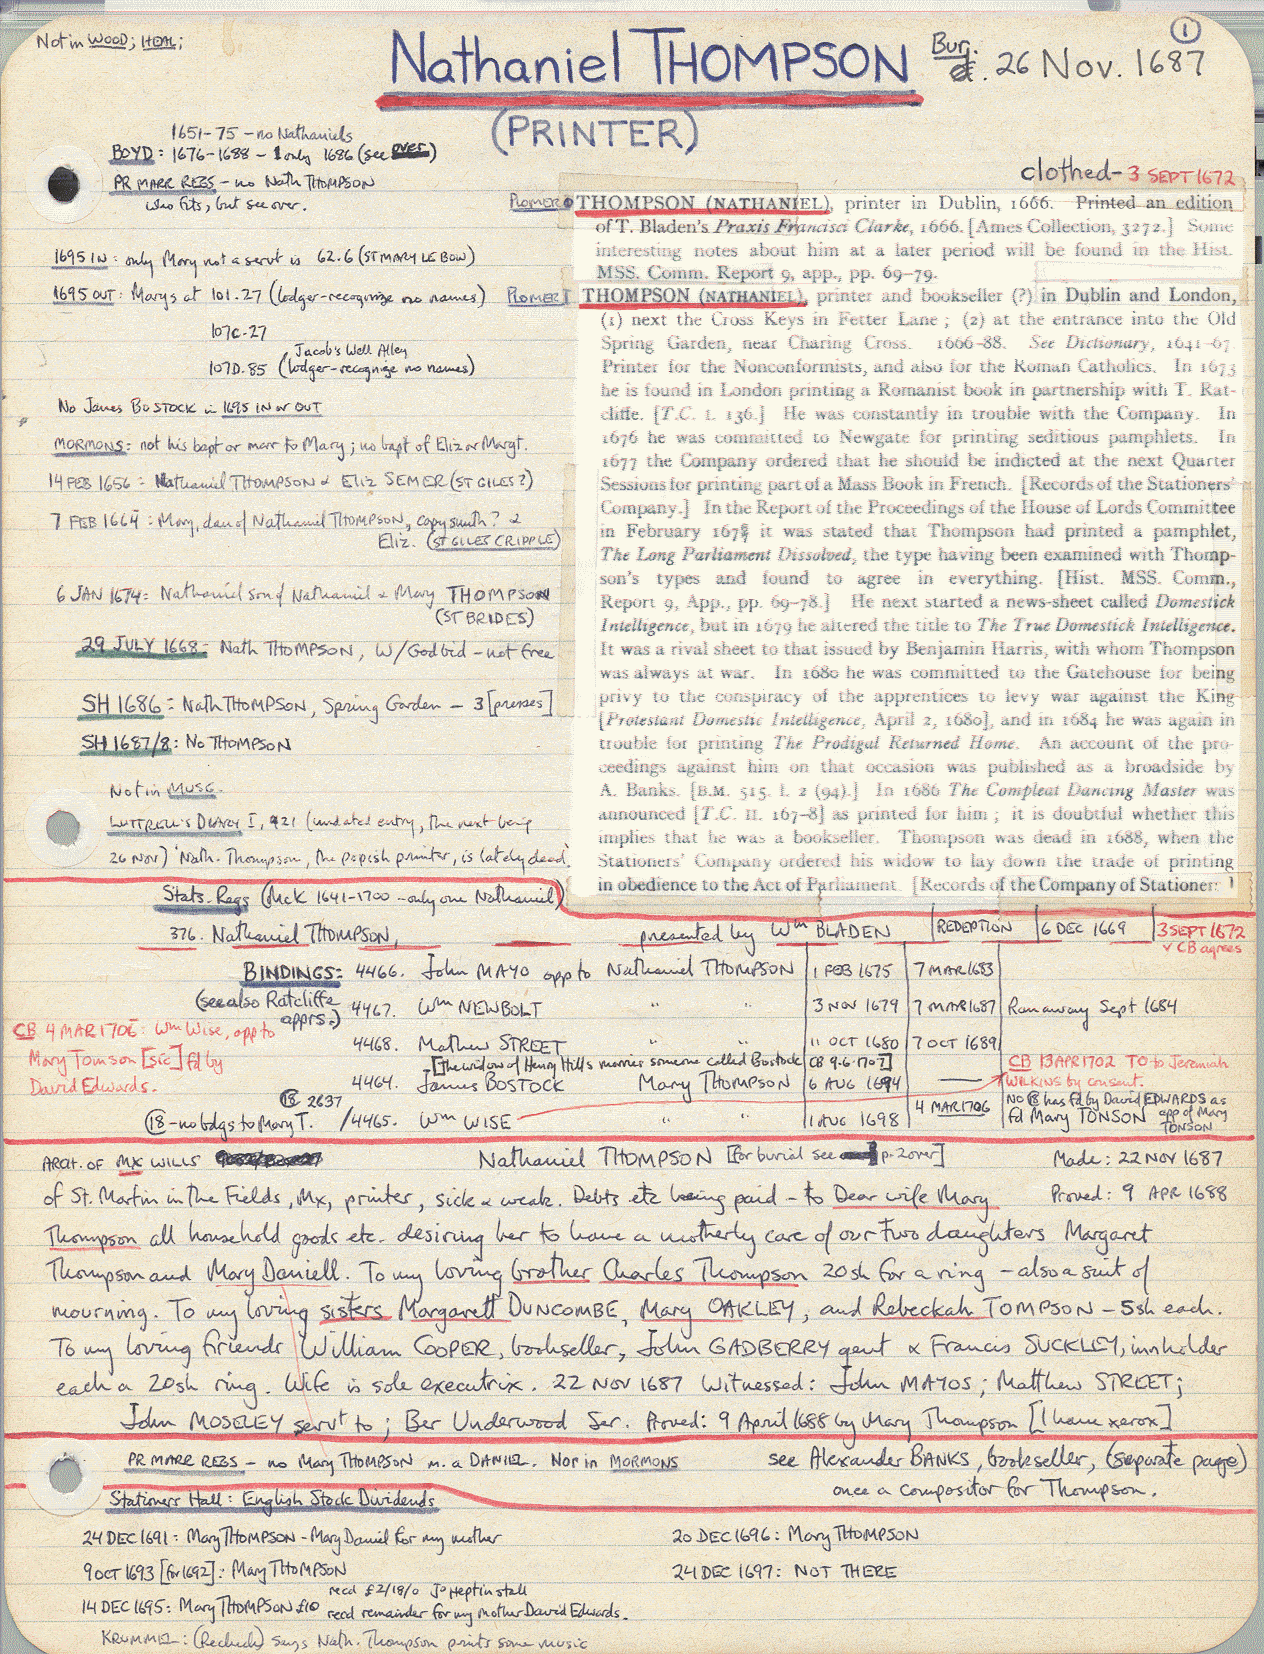 Not in WOOD; HEAL;
①
Nathaniel THOMPSON
Bur. 26 Nov. 1687
(PRINTER)
1651-75 - no Nathaniels
BOYD: 1676-1688 - 1 only 1686 (see over)
PR MARR REGS - no Nath THOMPSON
who fits, but see over.
clothed - 3 SEPT 1672
PLOMER THOMPSON (NATHANIEL), printer in Dublin, 1666. Printed an edition
of T. Bladen's Praxis Francisci Clarke, 1666. [Ames Collection, 3272.] Some
interesting notes about him at a later period will be found in the Hist.
MSS. Comm. Report 9, app., pp. 69-79.
PLOMER I THOMPSON (NATHANIEL), printer and bookseller (?) in Dublin and London,
(1) next the Cross Keys in Fetter Lane; (2) at the entrance into the Old
Spring Garden, near Charing Cross. 1666-88. See Dictionary, 1641-67.
Printer for the Nonconformists, and also for the Roman Catholics. In 1673
he is found in London printing a Romanist book in partnership with T. Rat-
cliffe. [T.C. I. 136.] He was constantly in trouble with the Company. In
1676 he was committed to Newgate for printing seditious pamphlets. In
1677 the Company ordered that he should be indicted at the next Quarter
Sessions for printing part of a Mass Book in French. [Records of the Stationers'
Company.] In the Report of the Proceedings of the House of Lords Committee
in February it was stated that Thompson had printed a pamphlet,
The Long Parliament Dissolved, the type having been examined with Thomp-
son's types and found to agree in everything. [Hist. MSS. Comm.,
Report 9, App., pp. 69-78.] He next started a news-sheet called Domestick
Intelligence, but in 1679 he altered the title to The True Domestick Intelligence.
It was a rival sheet to that issued by Benjamin Harris, with whom Thompson
was always at war. In 1680 he was committed to the Gatehouse for being
privy to the conspiracy of the apprentices to levy war against the King
[Protestant Domestic Intelligence, April 2, 1680], and in 1684 he was again in
trouble for printing The Prodigal Returned Home. An account of the pro-
ceedings against him on that occasion was published as a broadside by
A. Banks. [B.M. 515. l. 2 (94).] In 1686 The Compleat Dancing Master was
announced [T.C. II. 167-8] as printed for him; it is doubtful whether this
implies that he was a bookseller. Thompson was dead in 1688, when the
Stationers' Company ordered his widow to lay down the trade of printing
in obedience to the Act of Parliament. [Records of the Company of Stationer
1695 IN: only Mary not a servt is 62.6 (ST MARY LE BOW)
1695 OUT: Marys at 101.27 (lodger-recognize no names)
107C.27
Jacob's Well Alley
107D.85 (lodger-recognize no names)
No James BOSTOCK in 1695 IN or OUT
MORMONS: not his bapt or marr to Mary; no bapt of Eliz or Margt.
14 FEB 1656: Nathaniel THOMPSON & Eliz SEMER (ST GILES?)
7 FEB 1664: Mary, dau of Nathaniel THOMPSON, copysmith? &
Eliz. (ST GILES CRIPPLE)
6 JAN 1674: Nathaniel son of Nathaniel & Mary THOMPSON
(ST BRIDES)
29 JULY 1668: Nath THOMPSON, W/Godbid - not free
SH 1686: Nath THOMPSON, Spring Garden - 3 [presses]
SH 1687/8: No THOMPSON
Not in MUSG.
LUTTRELL'S DIARY I, 421 (undated entry, the next being
26 NOV) 'Nath. Thompson, the popish printer, is lately dead.'
Stats. Regs (McK 1641-1700 - only one Nathaniel)
376. Nathaniel THOMPSON, presented by Wm BLADEN REDEPTION 6 DEC 1669 3 SEPT 1672
✓ CB agrees
BINDINGS: 4466. John MAYO app to Nathaniel THOMPSON 1 FEB 1675 7 MAR 1683
(see also Ratcliffe apprs.) 4467. Wm NEWBOLT " " 3 NOV 1679 7 MAR 1687 Ran away Sept 1684
4468. Mathew STREET " " 11 OCT 1680 7 OCT 1689
[The widow of Henry Hills marries someone called Bostock CB 9-6-1707]
4464. James BOSTOCK Mary THOMPSON 6 AUG 1694 — CB 13 APR 1702 TO to Jeremiah
WILKINS by consent.
CB 4 MAR 1706: Wm Wise, app to
Mary Tomson [sic] fd by
David Edwards.
⑱ 2637
⑱ - no bdgs to Mary T. /4465. Wm WISE " " 1 AUG 1698 4 MAR 1706 NO ⑱ has fd by David EDWARDS as
fd Mary TONSON app of Mary
TONSON
ARCH. OF MX WILLS Nathaniel THOMPSON [for burial see p. 2 over] Made: 22 NOV 1687
of St. Martin in the Fields, Mx, printer, sick & weak. Debts etc being paid - to Dear wife Mary Proved: 9 APR 1688
Thompson all household goods etc. desiring her to have a motherly care of our two daughters Margaret
Thompson and Mary Daniell. To my loving brother Charles Thompson 20sh for a ring - also a suit of
mourning. To my loving sisters Margarett DUNCOMBE, Mary OAKLEY, and Rebeckah TOMPSON - 5sh each.
To my loving friends William COOPER, bookseller, John GADBERRY gent & Francis SUCKLEY, innholder
each a 20sh ring. Wife is sole executrix. 22 NOV 1687 Witnessed: John MAYOS; Matthew STREET;
John MOSELEY servt to; Ber Underwood Ser. Proved: 9 April 1688 by Mary Thompson [I have xerox]
PR MARR REGS - no Mary THOMPSON m. a DANIEL. Nor in MORMONS
see Alexander BANKS, bookseller, (separate page)
once a compositor for Thompson.
Stationers Hall: English Stock Dividends
24 DEC 1691: Mary THOMPSON - Mary Daniel for my mother
20 DEC 1696: Mary THOMPSON
9 OCT 1693 [for 1692]: Mary THOMPSON
24 DEC 1697: NOT THERE
recd £2/18/0 Jo Heptinstall
14 DEC 1695: Mary THOMPSON £10 recd remainder for my mother David Edwards.
KRUMMEL: (Recheck) says Nath. Thompson prints some music